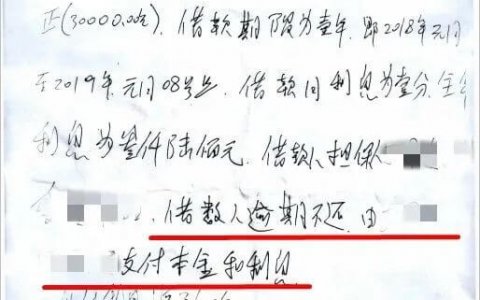 正(30000.00元).借款期限为壹年.即2018年元月
至2019年元月08号止.借款月利息为壹分.全年
利息为叁仟陆佰元.借款人担保人
.借款人逾期不还.由
支付本金和利息